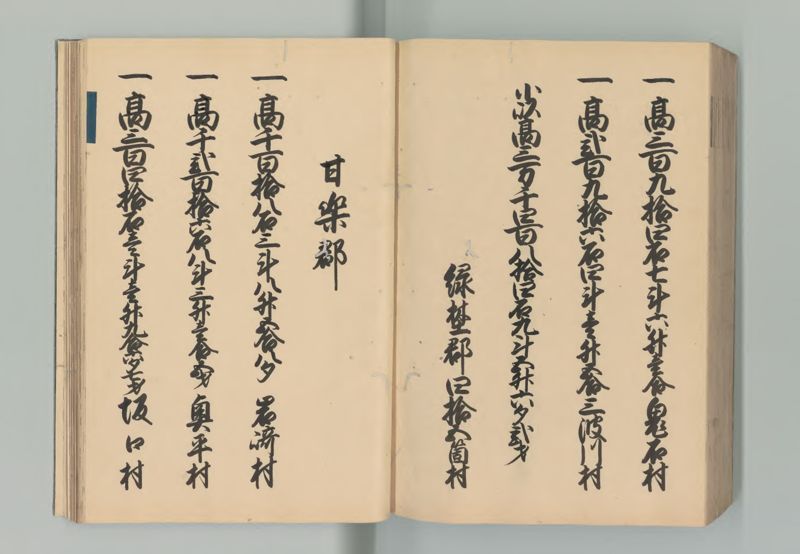 一 高三百九拾四石七斗六升壱合 鬼石村
一 高弐百九拾六石四斗壱升五合 三波川村
小以高三万千四百八拾四石九斗五升六夕弐才
緑埜郡四拾五箇村
甘楽郡
一 高千百拾八石三斗八升五合八夕 岩崎村
一 高千弐百拾六石八斗三升壱合五才 奥平村
一 高三百四拾石壱斗壱升九合六夕七才 坂口村